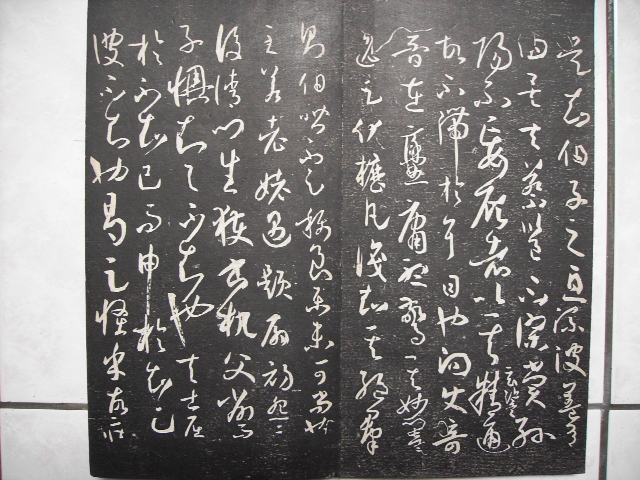 是知伯子之息流波蓋有
由矣夫蔡邕不謬賞孫
陽不妄顧者以其玄鑒精通
故不滯於耳目也向使奇
音在爨庸聽驚其妙響
逸足伏櫪凡識知其絕群
則伯喈不足稱良樂未可尚也
至若老姥遇題扇初怨而
後請門生獲書机父削而
子懊知與不知也夫士屈
於不知己而申於知己
彼不知也曷足怪乎故莊